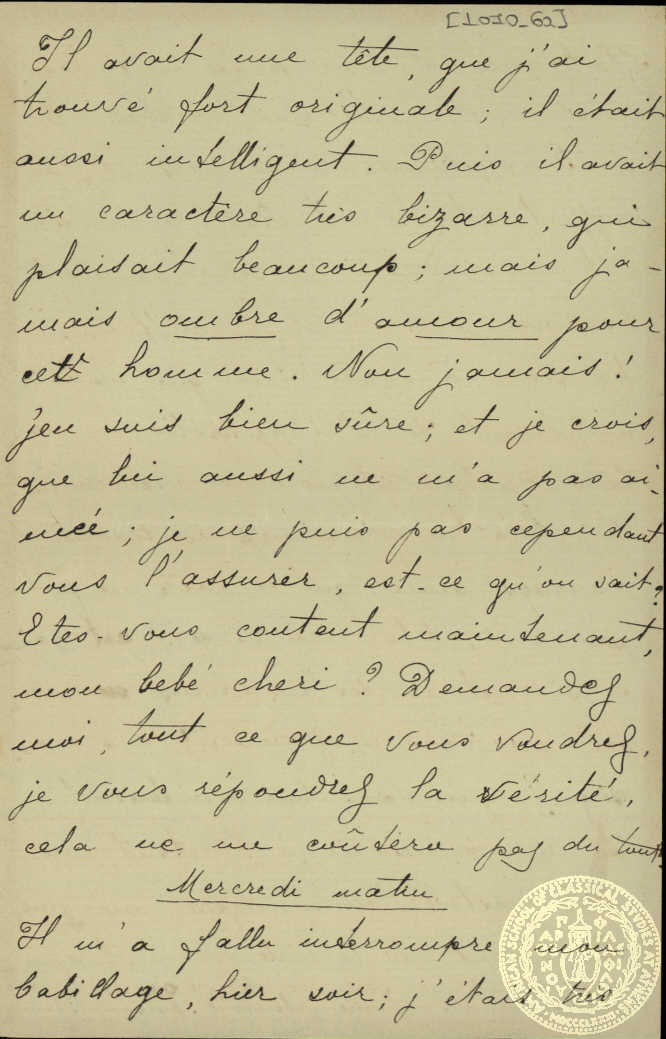 [1010-62]
Il avait une tête, que j'ai
trouvé fort originale ; il était
aussi intelligent. Puis il avait
un caractère très bizarre, qui
plaisait beaucoup ; mais ja-
mais ombre d'amour pour
cett homme. Non jamais !
j'en suis bien sûre ; et je crois,
que lui aussi ne m'a pas ai-
meé ; je ne puis pas cependant
vous l'assurer, est-ce qu'on sait ?
Etes-vous content maintenant,
mon bebé cheri ? Demandez
moi, tout ce que vous voudrez,
je vous répondrez la vérité,
cela ne me coûtera pas du tout.
Mercredi matin
Il m'a fallu interrompre mon
babillage, hier soir ; j'étais très
AMERICAN SCHOOL OF CLASSICAL STUDIES AT ATHENS
MDCCCLXXXI